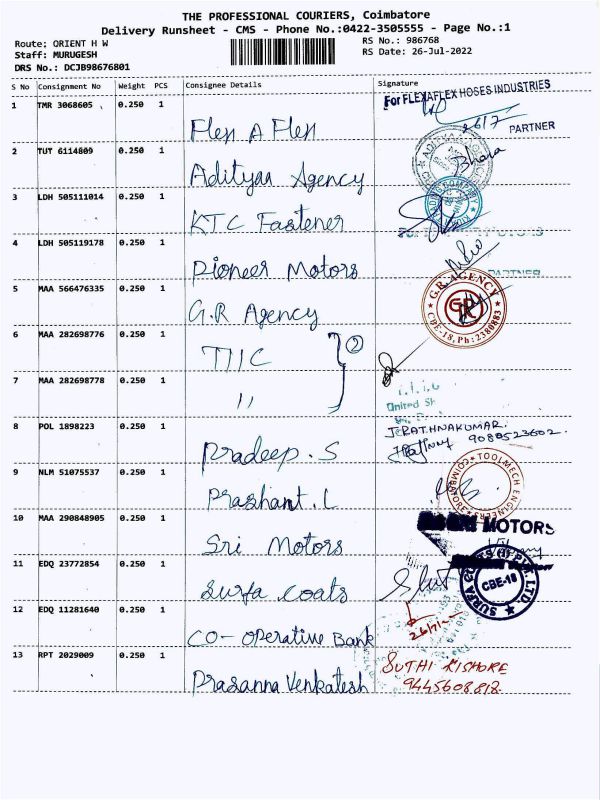 THE PROFESSIONAL COURIERS, Coimbatore
Delivery Runsheet - CMS - Phone No.:0422-3505555 - Page No.:1
Route: ORIENT H W
RS No.: 986768
Staff: MURUGESH
RS Date: 26-Jul-2022
DRS No.: DCJB98676801
S No Consignment No Weight PCS Consignee Details Signature
1 TMR 3068605 0.250 1 Flex A Flex
For FLEXAFLEX HOSES INDUSTRIES
26/7
PARTNER
2 TUT 6114809 0.250 1 Adityaa Agency
3 LDH 505111014 0.250 1 KTC Fastener
4 LDH 505119178 0.250 1 Pioneer Motors
PARTNER
5 MAA 566476335 0.250 1 G.R Agency
G.R. AGENCY
GR
CBE-18, Ph:2380883
6 MAA 282698776 0.250 1 TIIC 2
7 MAA 282698778 0.250 1 "
United
8 POL 1898223 0.250 1 Pradeep . S
J.RATHNAKUMAR.
9080523602.
9 NLM 51075537 0.250 1 Prashant . L
TOOLMECH ENGINEERS
COIMBATORE
10 MAA 290848905 0.250 1 Sri Motors
MOTORS
11 EDQ 23772854 0.250 1 Surfa Coats
SURFA COATS (I) PVT. LTD
CBE-18
12 EDQ 11281640 0.250 1 CO-operative Bank
26/7
13 RPT 2029009 0.250 1 Prasanna Venkatesh
SUTHI KISHORE
9445608818.